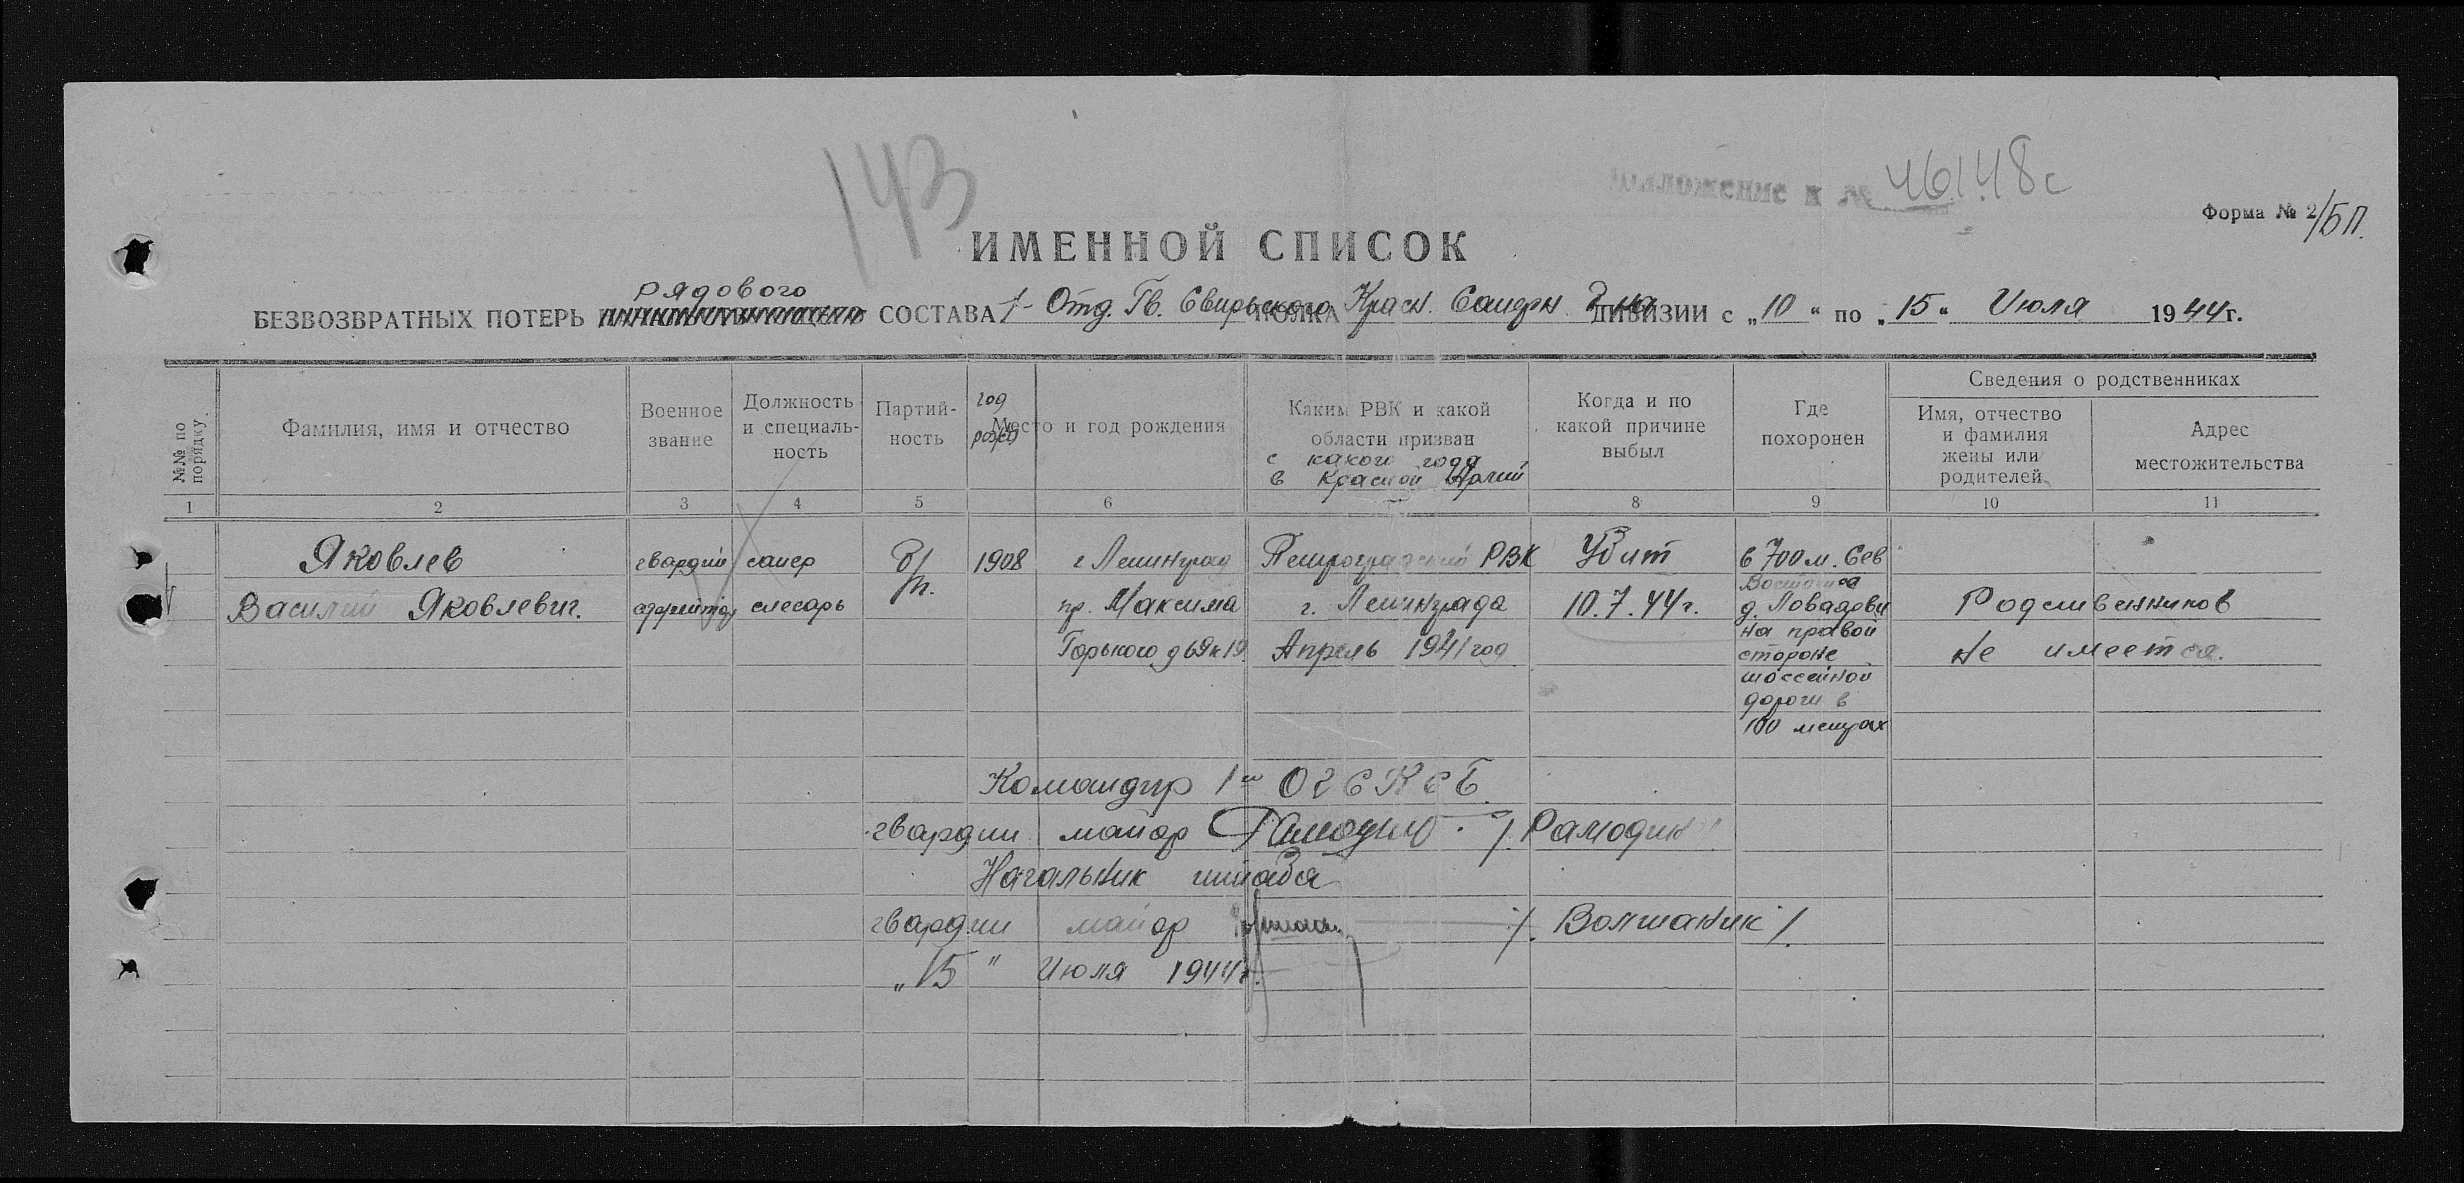 143
приложение к № 46148с
Форма № 2/БП.
ИМЕННОЙ СПИСОК
рядового
БЕЗВОЗВРАТНЫХ ПОТЕРЬ СОСТАВА 1- Отд. Гв. Свирьского ПОЛКА Красн. Саперн ДИВИЗИИ с „10“ по „15“ Июля 1944г.
№№ по порядку.
Фамилия, имя и отчество
Военное звание
Должность и специальность
Партийность
год рожд
Место и год рождения
Каким РВК и какой области призван
с какого года
в Красной Армии
Когда и по какой причине выбыл
Где похоронен
Сведения о родственниках
Имя, отчество и фамилия жены или родителей
Адрес местожительства
1 2 3 4 5 6 8 9 10 11
Яковлев гвардии сапер б/п. 1908 г Ленинград Петроградский РВК Убит в 700м. Сев
Василий Яковлевич. ефрейтор слесарь пр. Максима г. Ленинграда 10.7.44г. Восточнее
д.
на правой
Горького д 69 к 19. Апрель 1941 год стороне
шоссейной
дороги в
100 метрах
Родственников
не имеется.
Командир 1й ОГСКСБ
гвардии майор /Рамодин/
Начальник штаба
гвардии майор /. Волшаник /.
„15" Июля 1944г.